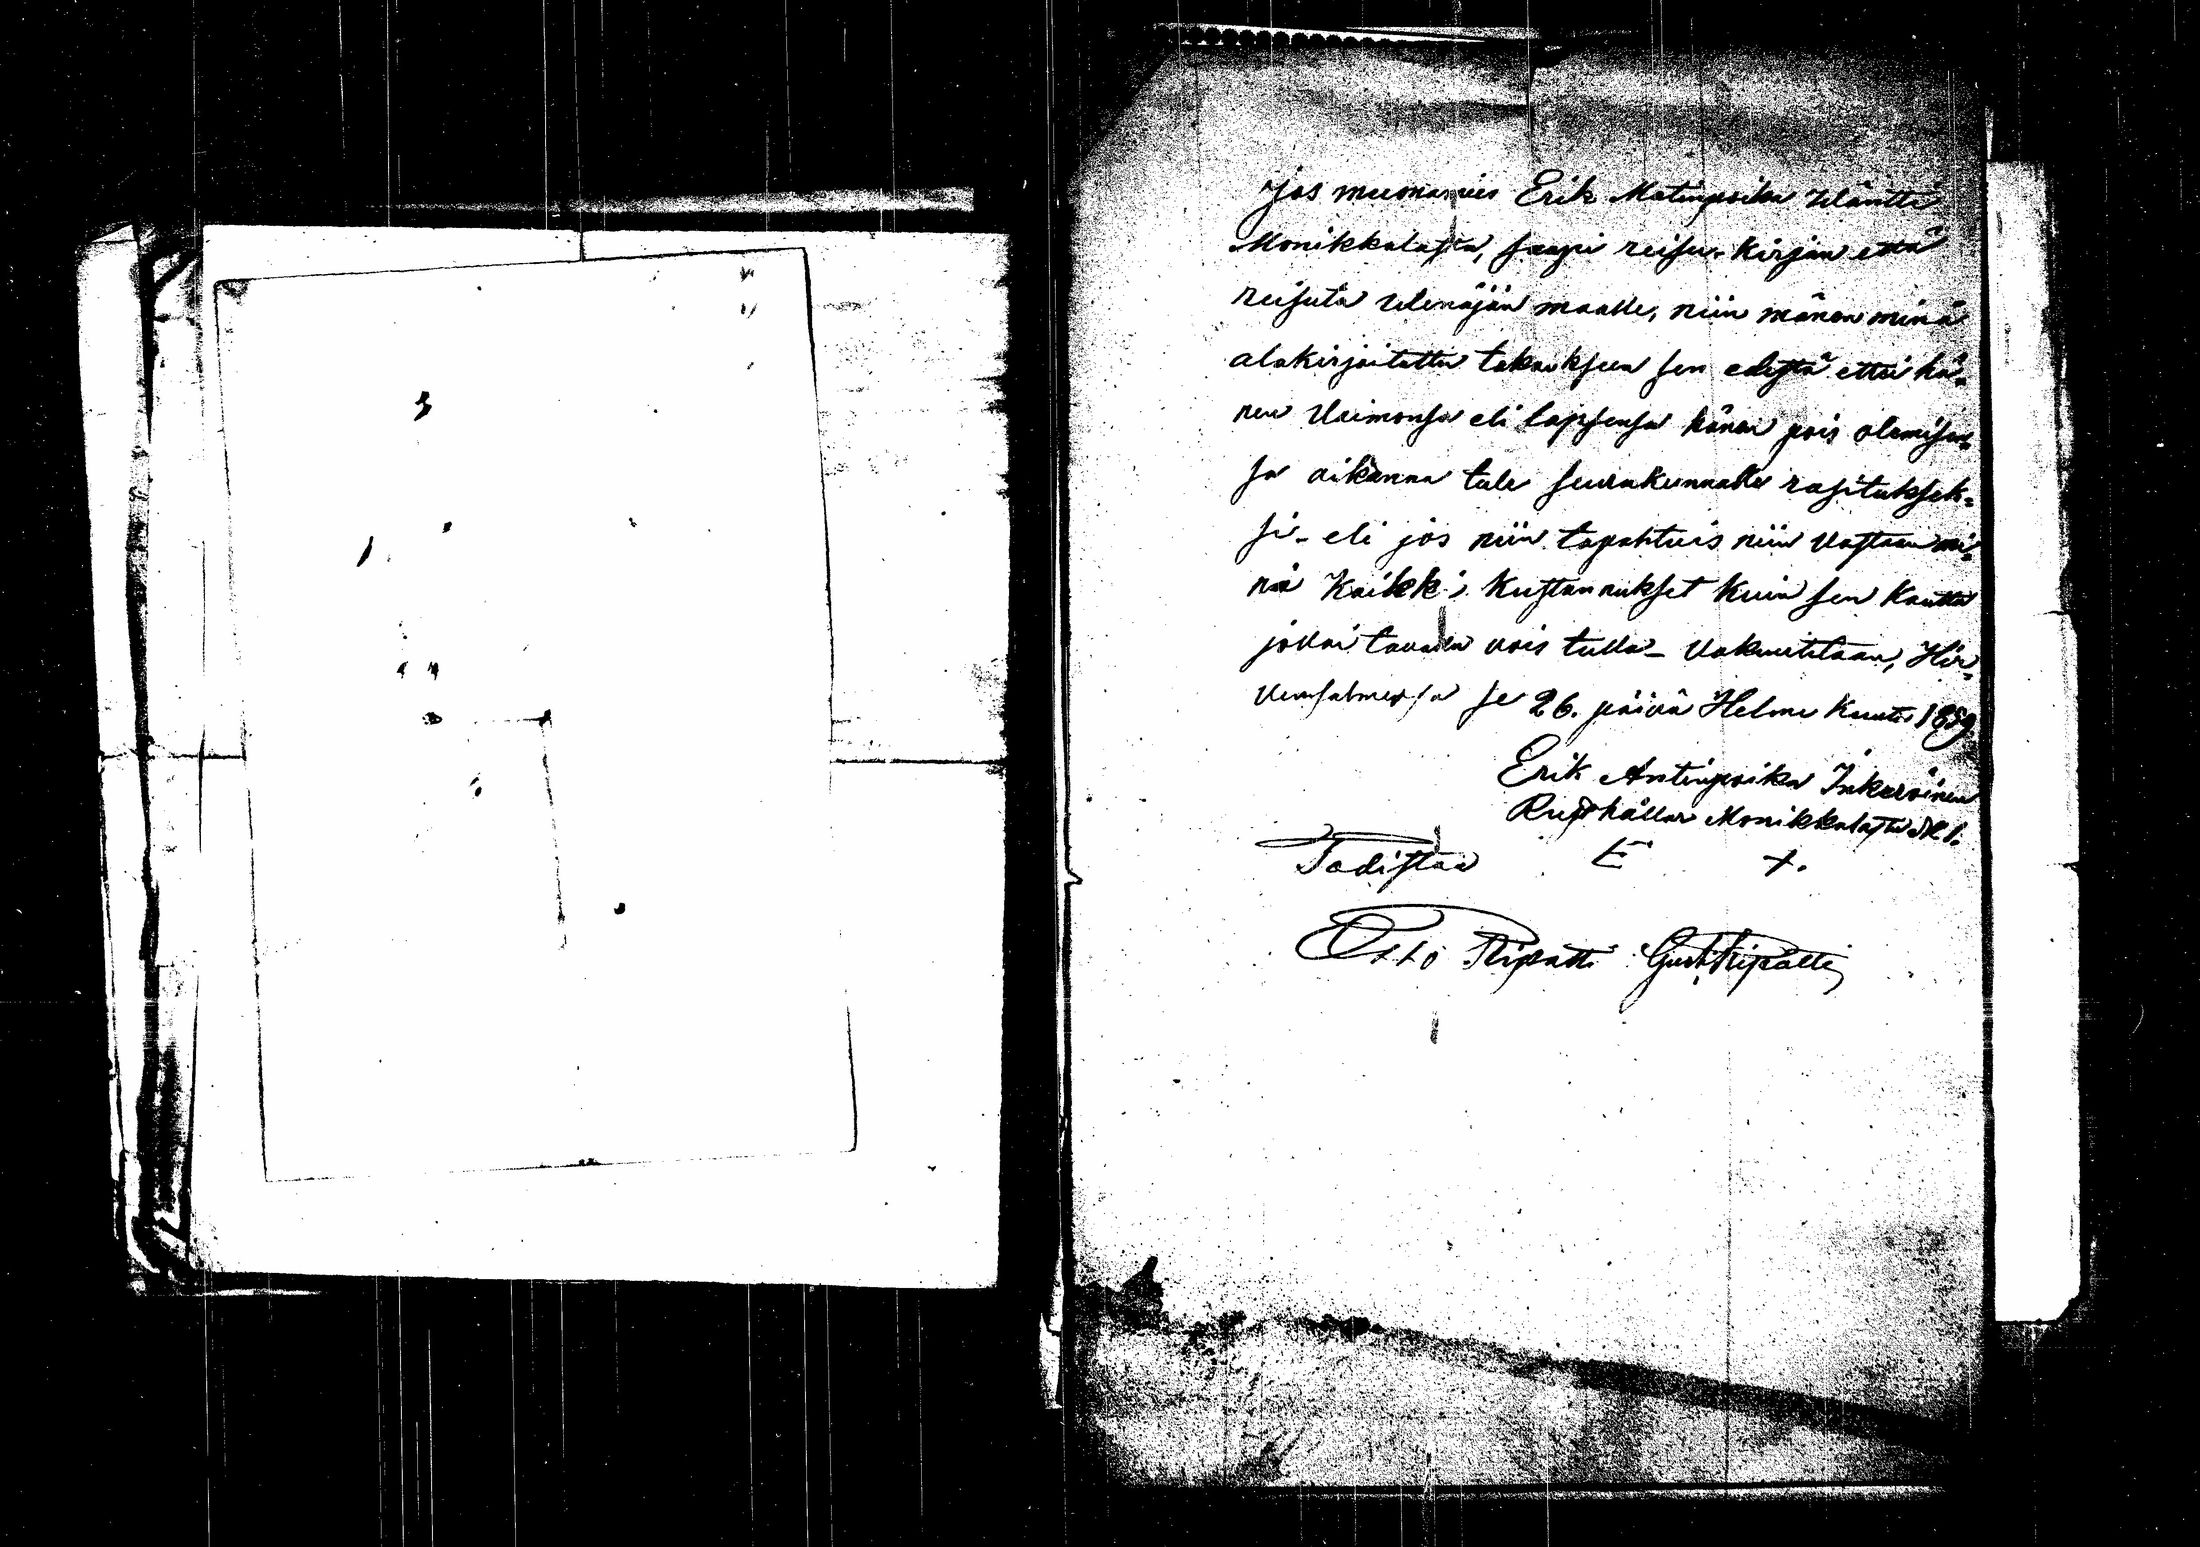 Jos muonamies Erik Matinpoika Wäntti
Monikkalasta, saapi reisu-kirjan että
reisuta Wenäjän maalle, niin mänen minä
alakirjoitettu takaukseen sen edestä ettei hä-
nen Vaimonsa eli lapsensa hänen pois olemisen-
sa aikanna tule seurakunnalle rasituksek-
si - eli jos niin tapahtuis niin Vastaan mi-
nä Kaikki Kustannukset kuin sen kautta
jollai tavalla vois tulla - Vakuutetaan, Hir-
vensalmessa se 26. päivä Helme kuuta 1859
Erik Antinpoika Inkeröinen
Rusthållar Monikkalasta N 1.
Todistaa E +.
Otto Ripatti Gust Ripatti